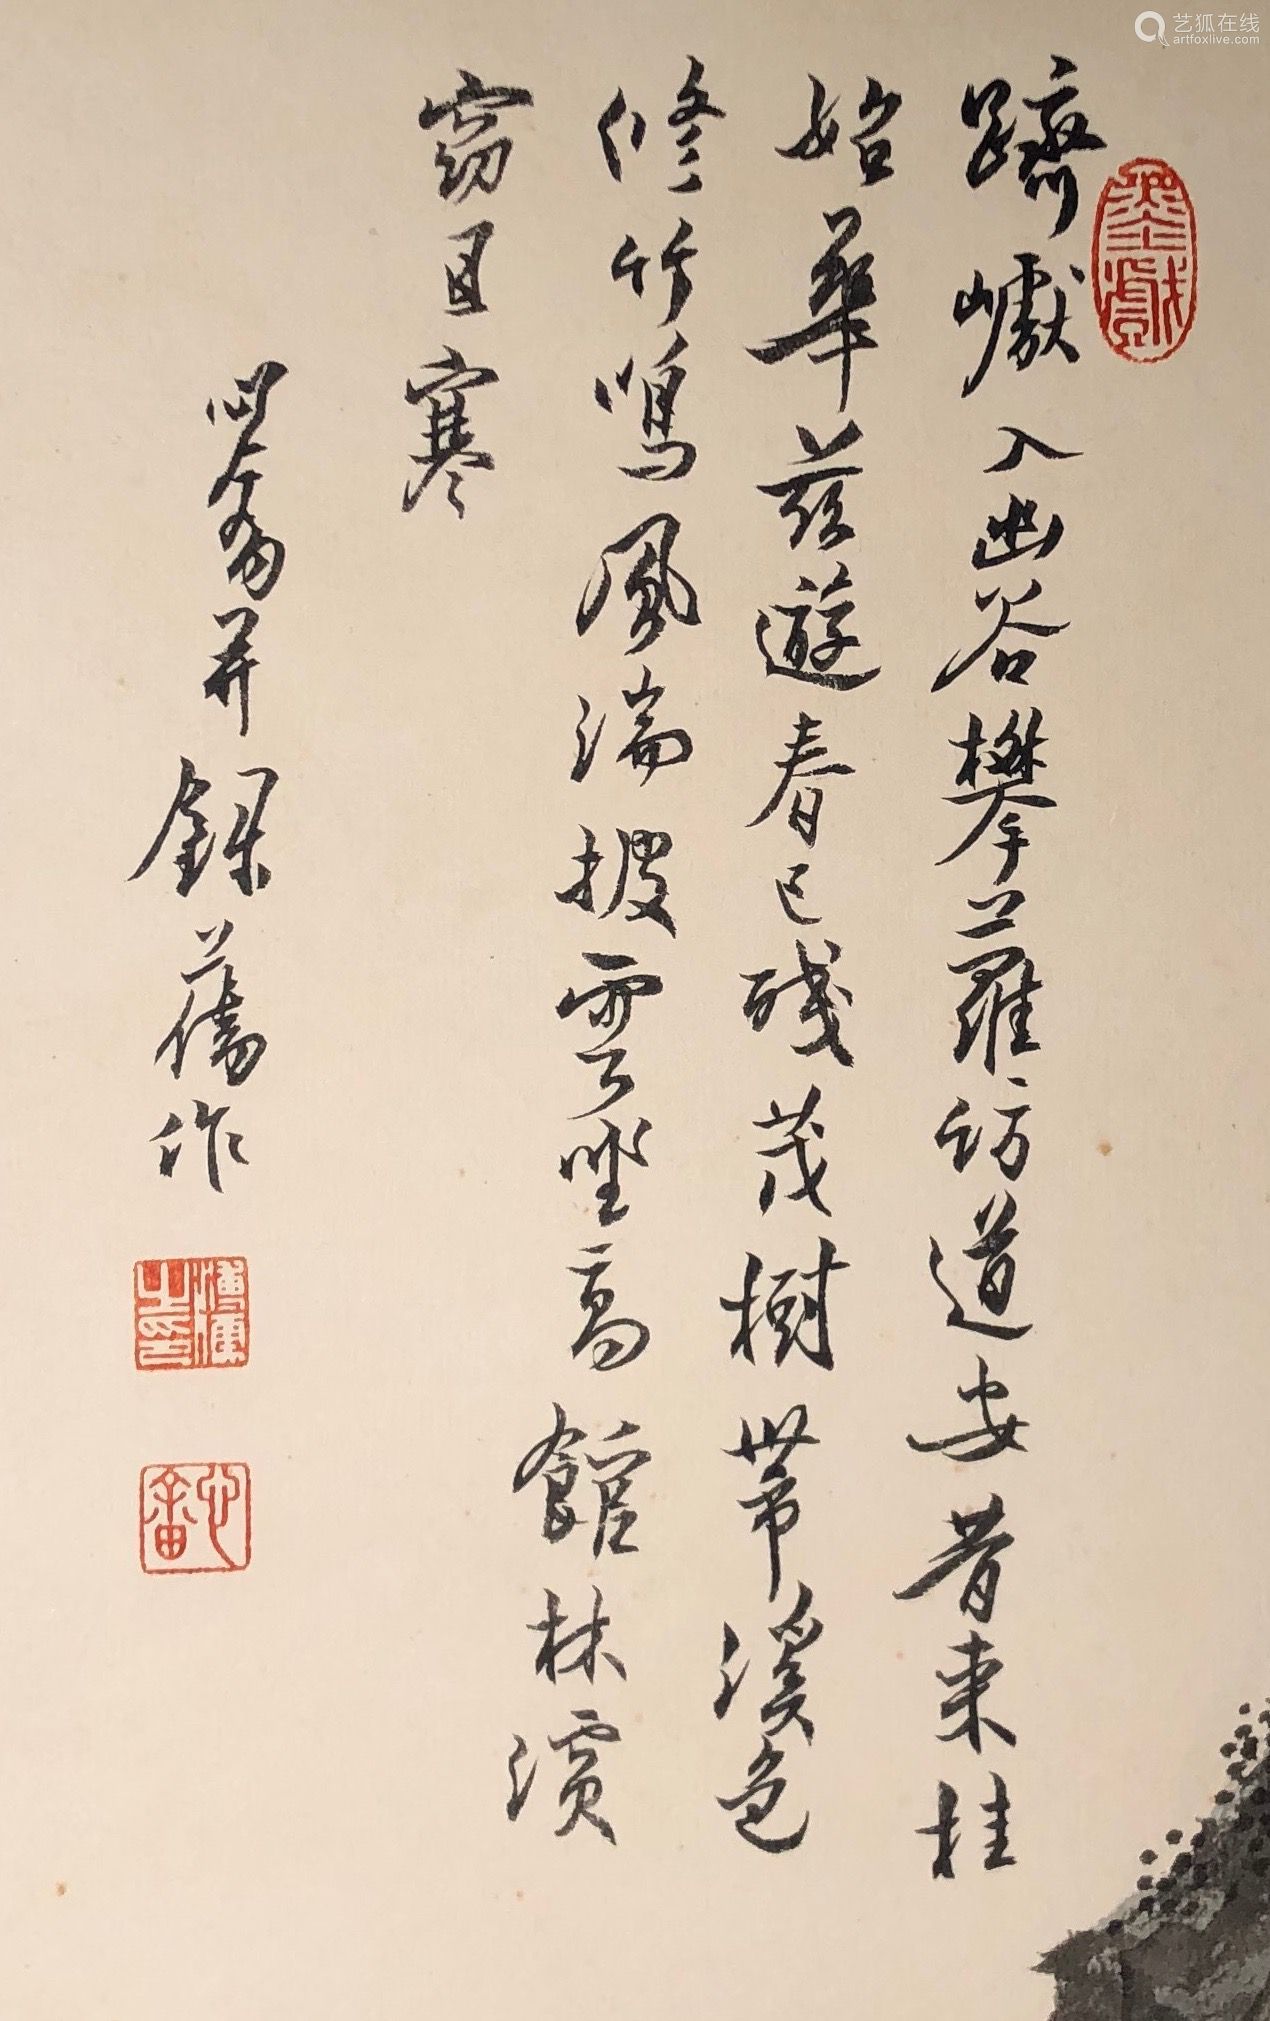 艺狐在线
artfoxlive.com
躋巘入幽谷攀蘿訪道安昔來桂
始華茲遊春已殘茂樹帶溪色
修竹鳴風湍披雲坐高館林濱
窈且寒
心畬并錄舊作
溥儒之印
心畬